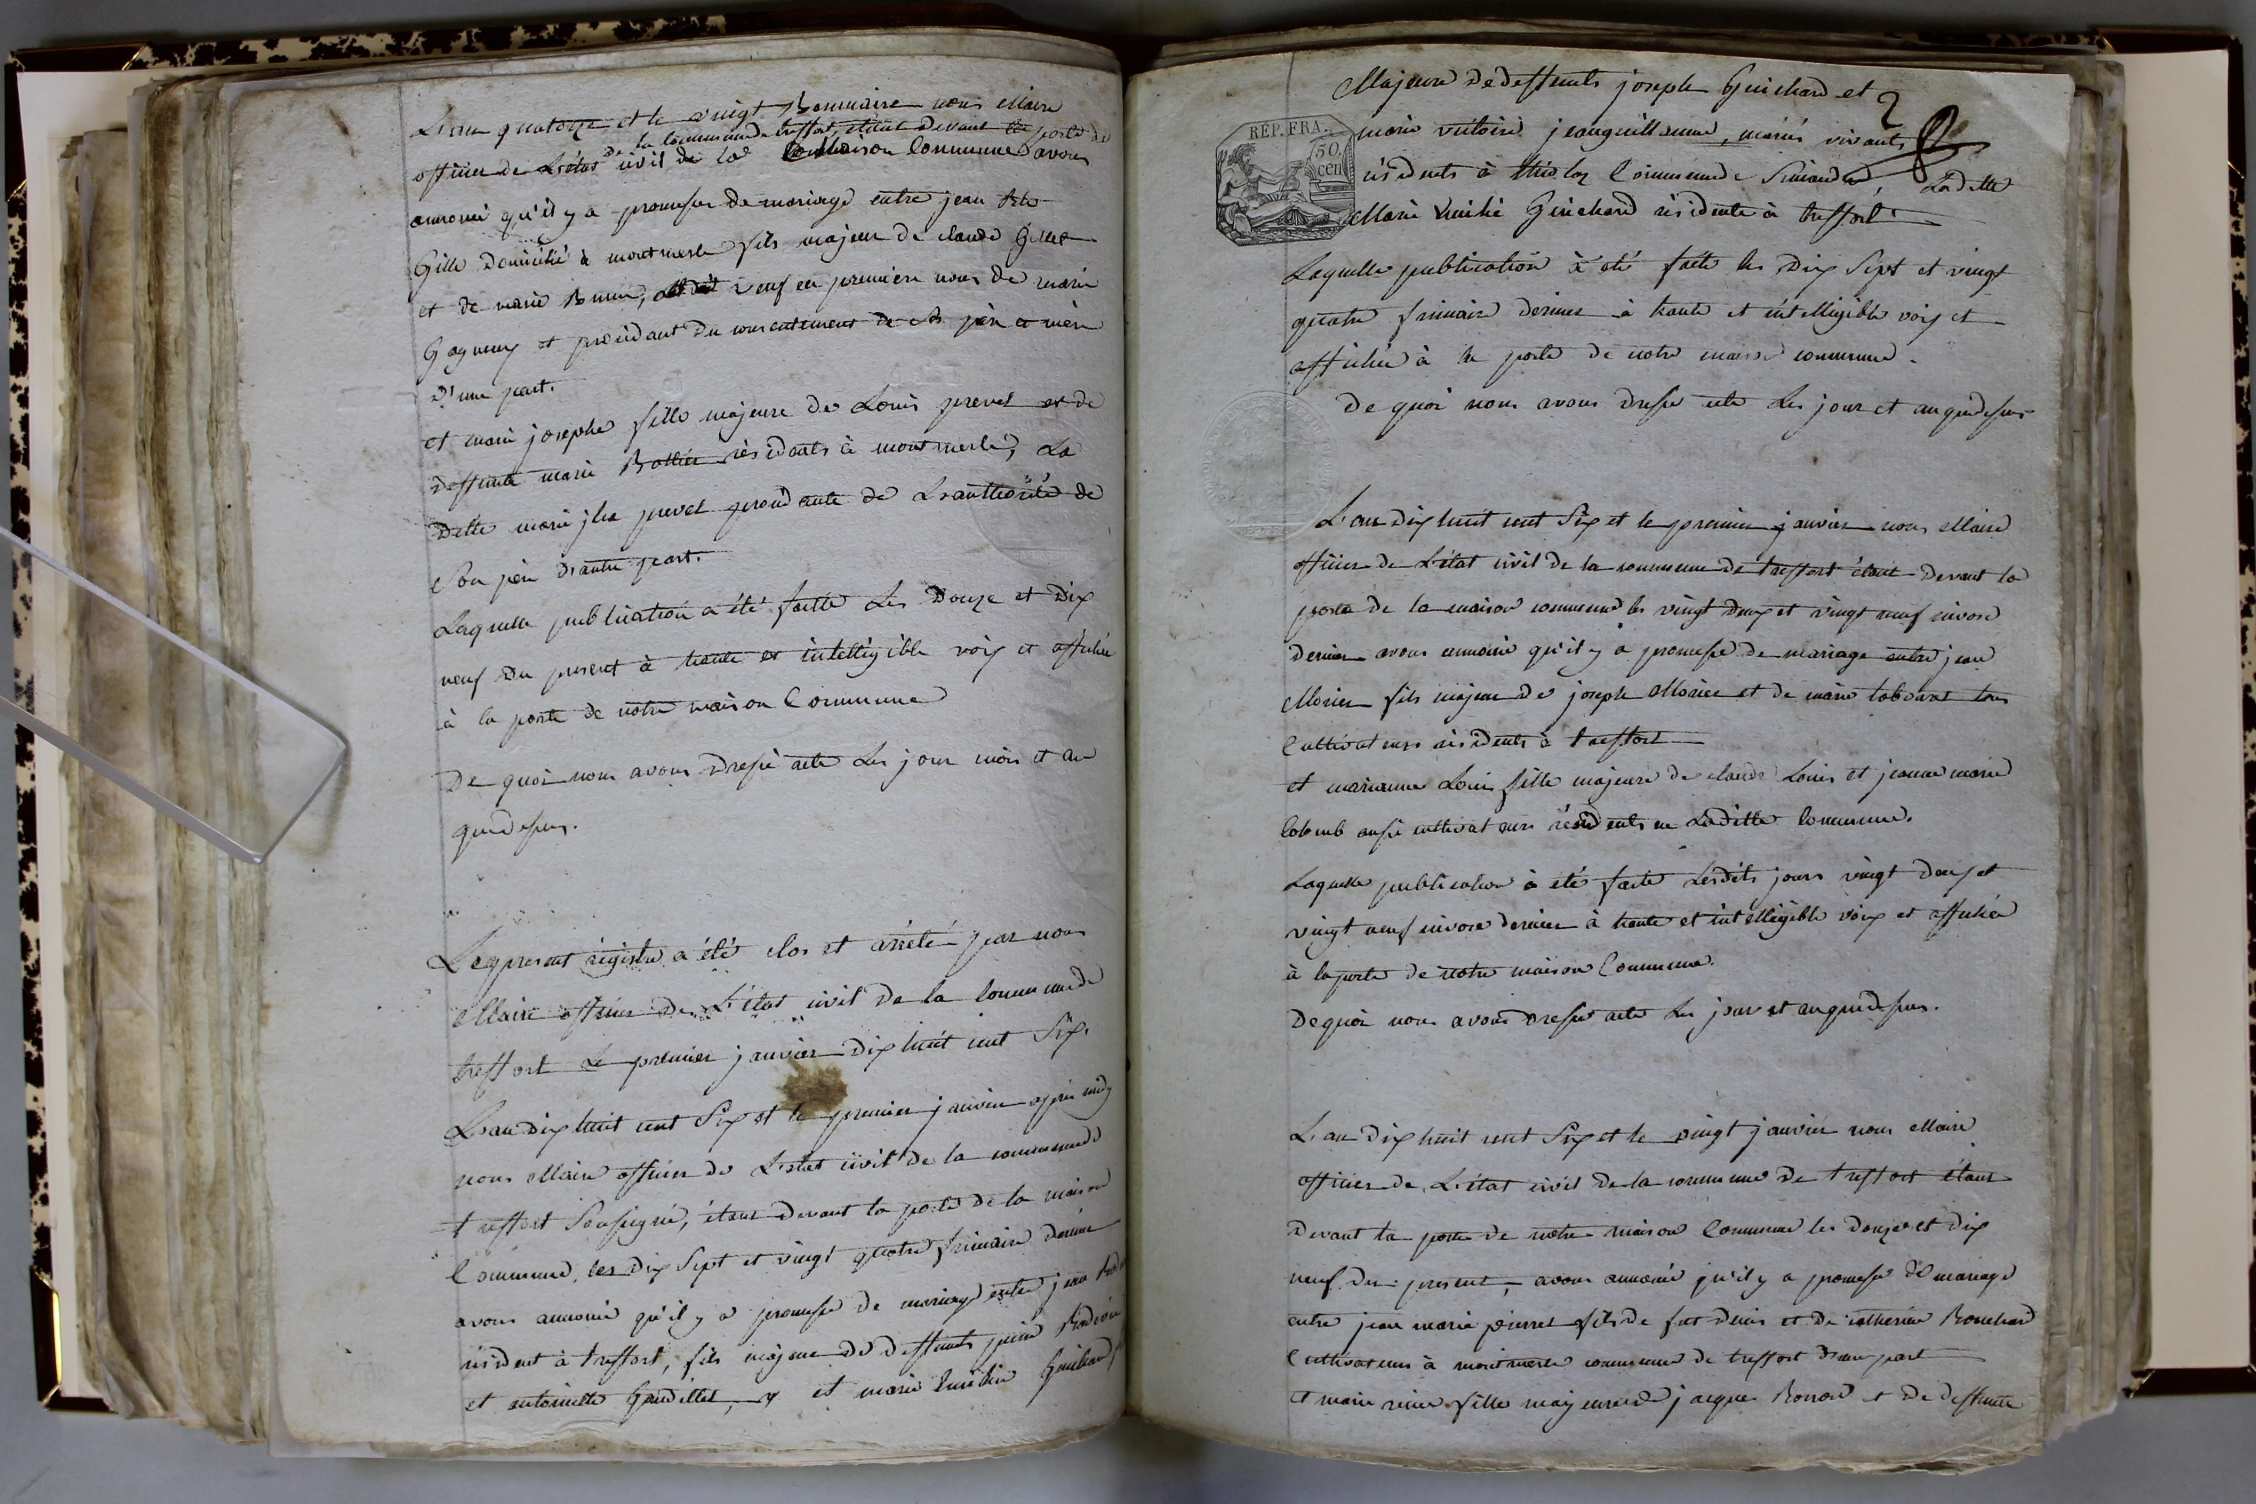 L'an quatorze et le vingt Brumaire nous Maire
de la Commune de treffort, étant devant la porte de
officier de L'état civil de la maison Commune avons
annoncé qu'il y a promesse de mariage entre jean
Gille domicilié à montmerle fils majeur de claude Gille
et de marie Brun, veuf en premiere noces de marie
Gagneux et procédant du consentement de ses père et mère
d'une part.
et marie josephe fille majeure de Louis prevel et de
deffunte marie résidents à montmerle, La
ditte marie jhe prevel procédante de L'authorité de
Son père d'autre part.
Laquelle publication a été faitte Les Douze et Dix
neuf du present à haute et intelligible voix et affichée
à la porte de notre maison Commune
De quoi nous avons dressé acte Les jour mois et an
que dessus.
Le present régistre a été clos et arrêté par nous
Maire officier de L'état civil de la Commune de
treffort Le premier janvier dix huit cent Six.
L'an dix huit cent Six et le premier janvier après midy
nous Maire officier de L'état civil de la commune de
treffort Soussigné, étant devant la porte de la maison
Commune, les dix Sept et vingt quatre frimaire dernier
avons annoncé qu'il y a promesse de mariage entre jean
résident à treffort, fils majeur de deffunts
et antoinette Gaudillet, et marie Emilie Guichard
Majeure de deffunts joseph Guichard et
2
REP. FRA.
50.
cen
marie victoire jeanguillaume, mariés vivants
résidents à Commune de Simandre, Laditte
Marie Emilie Guichard résidente à treffort
Laquelle publication à été faite les dix Sept et vingt
quatre frimaire dernier à haute et intelligible voix et
affichée à la porte de notre maison commune.
De quoi nous avons dressé acte Les jour et an que dessus
L'an dix huit cent Six et le premier janvier nous Maire
officier de L'état civil de la commune de treffort étant devant la
porte de la maison commune les vingt deux et vingt neuf nivose
dernier avons annoncé qu'il y a promesse de mariage entre jean
Morier fils majeur de joseph Morier et de marie tous
Cultivateurs résidents à treffort
et marianne Louis fille majeure de claude Louis et jeanne marie
Colomb aussi cultivateurs résidents en Laditte Commune.
Laquelle publication à été faite Lesdits jours vingt deux et
vingt neuf nivose dernier à haute et intelligible voix et affichée
à la porte de notre maison Commune.
De quoi nous avons dressé acte Les jour et an que dessus.
L'an dix huit cent Six et le vingt janvier nous Maire
officier de L'état civil de la commune de treffort étant
devant la porte de notre maison Commune les douze et dix
neuf du present, avons annoncé qu'il y a promesse de mariage
entre jean marie pierret fils de fut denis et de catherine Bouchard
Cultivateurs à montmerle commune de treffort d'une part
et marie reine fille majeure de jacques et de deffunte